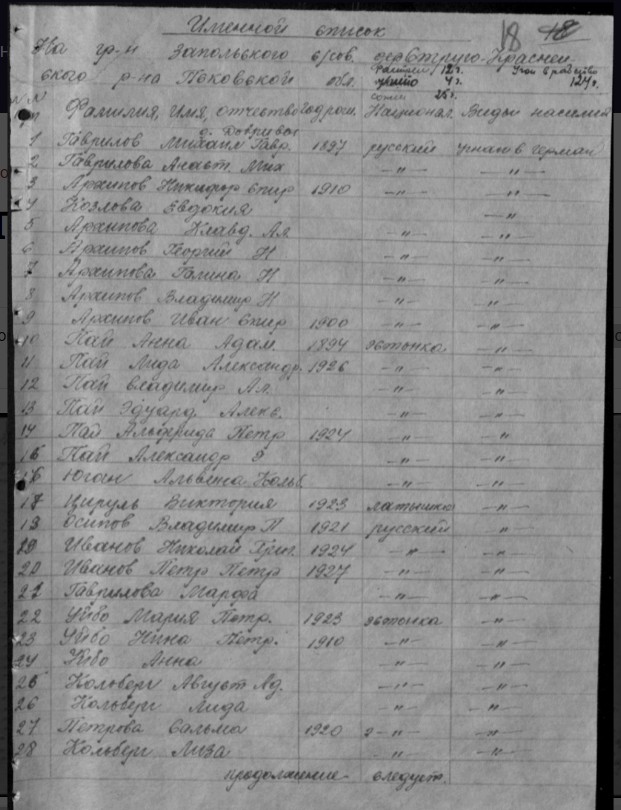 Именной список 18
На гр-н Запольского с/сов. дер Струго-Красней-
ского р-на Псковской обл. убито 4 г. 124 г.
Фамилия, имя, отчество год рож. Национал. Виды насилия
1 Гаврилов Михаил Гавр. 1897 русский угнан в герман
2 Гаврилова Анаст. Мих —"— —"—
3 Архипов Никифор Спир 1910 —"— —"—
4 Козлова Евдокия —"—
5 Архипова Клавд. Ал —"— —"—
6 Архипов Георгий Н —"— —"—
7 Архипова Галина Н —"— —"—
8 Архипов Владимир Н —"— —"—
9 Архипов Иван Спир 1900 —"— —"—
10 Пай Анна Адам. 1894 эстонка —"—
11 Пай Лида Александр. 1926 —"— —"—
12 Пай Владимир Ал. —"— —"—
13 Пай Эдуард Алекс. —"— —"—
14 Пай Альфрида Петр 1924 —"— —"—
15 Пай Александр Э —"— —"—
16 Юган Альвина —"— —"—
17 Цируль Виктория 1923 латышка —"—
18 Осипов Владимир П 1921 русский —"—
19 Иванов Николай Григ 1924 —"— —"—
20 Иванов Петр Петр 1927 —"— —"—
21 Гаврилова Марфа —"— —"—
22 Уйбо Мария Петр. 1923 эстонка —"—
23 Уйбо Нина Петр. 1910 —"— —"—
24 Уйбо Анна —"— —"—
25 Кольберг Август Ад. —"— —"—
26 Кольберг Лида —"— —"—
27 Петрова Сальма 1920 э—"— —"—
28 Кольберг Лиза —"— —"—
продолжение следует.